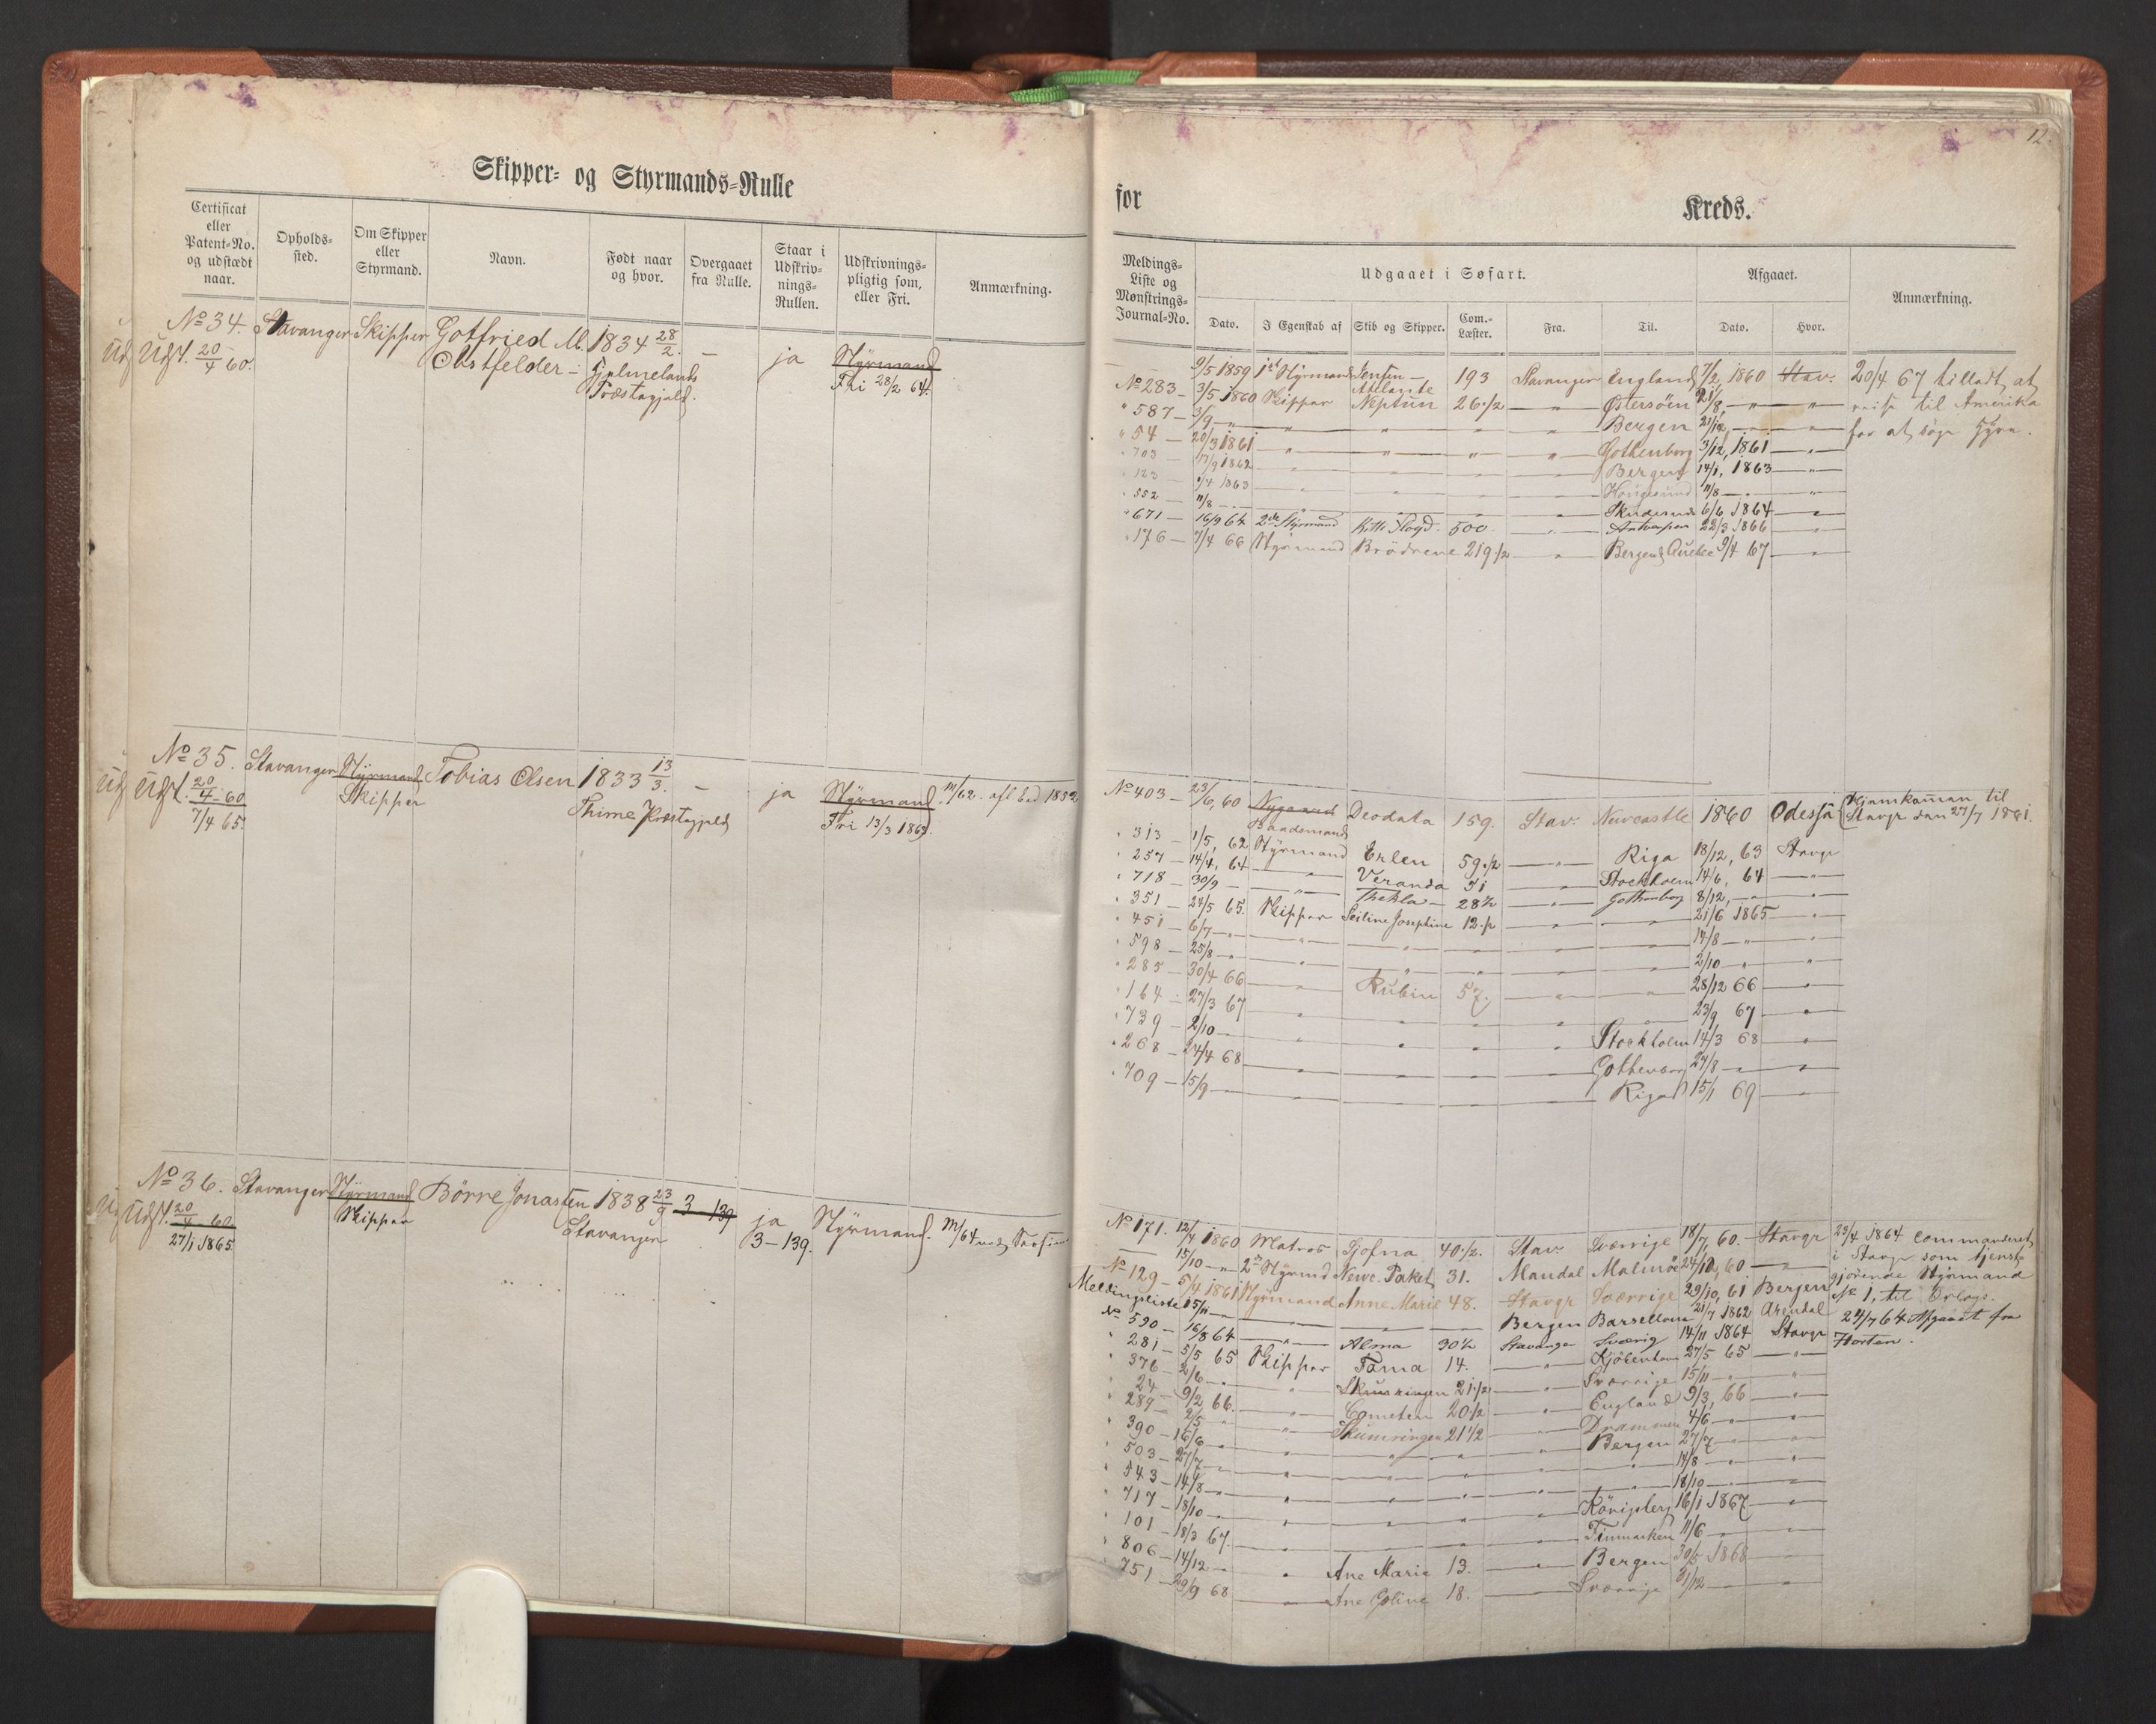 12.
Skipper- og Styrmands-Rulle
for Kreds.
Certificat eller Patent-No. og udstædt naar.
Opholds-sted.
Om Skipper eller Styrmand.
Navn.
Født naar og hvor.
Overgaaet fra Rulle.
Staar i Udskriv-nings-Rullen.
Udskrivnings-pligtig som, eller Fri.
Anmærkning.
Meldings-Liste og Mønstrings-Journal-No.
Udgaaet i Søfart.
Dato.
I Egenskab af
Skib og Skipper.
Com.-Læster.
Fra.
Til.
Afgaaet.
Dato.
Hvor.
Anmærkning.
No 34. Stavanger Skipper Gotfried M. 1834 28/2. — ja Styrmand
Udst. 20/4 60. Obstfelder — Hjelmelands Fri 28/2 64.
Præstegjeld.
9/5 1859 1ste Styrmand 193 Stavanger England 7/2, 1860 Stav:
No 283 — 3/5 1860 Skipper Neptun 26 1/2 — " — Østersøen 21/8, — " — "
" 587 — 3/9 — " — " — " — " — Bergen 21/12, — " — "
" 54 — 20/3 1861 — " — " — " — " — Gothenborg 3/12, 1861 — " —
" 703 — 17/9 1862 — " — Bergen 14/1, 1863 — " —
" 123 — 1/4 1863 — " — Haugesund 11/8 — " — "
" 552 — 11/8 — " — Skudesnæs 6/6 1864 — " —
" 671 — 16/9 64 2den Styrmand 500 — " — Antverpen 22/3 1866 — " —
" 176 — 7/4 66 Styrmand Brødrene 219 1/2 — " — Bergen & Quebec 9/4 67 — " —
20/4 67 tilladt at
reise til Amerika
for at søge Hyre.
No 35. Stavanger Styrmand Tobias Olsen 1833 13/3. — ja Styrmand.
Udst. 20/4 60 Skipper Thime Præstegjeld Fri 13/3 1863.
7/4 65.
No 403 — 23/6, 60 Baadsmand Deodata 159. Stav: Newcastle 1860 Odessa Hjemkommen til
Stavgr den 27/7 1861.
" 313 — 1/5, 62 Styrmand Erlen 59 1/2 — " — Riga 18/12, 63 Stavgr
" 257 — 14/4, 64 — " — Veranda 51 — " — Stockholm 14/6, 64 — " —
" 718 — 30/9 — — " — Thekla — 28 1/2 — " — Gothenborg 8/12, — " — "
" 351 — 24/5 65. Skipper Seiline Josephine 12 1/2 — " — 21/6 1865 — " —
" 451 — 6/7 — " — " — " — " — 14/8 — " — "
" 598 — 25/8 — " — " — " — " — 2/10 — " — "
" 285 — 30/4 66 — " — Rubin 57. — " — 28/12 66 — " —
" 164 — 27/3 67 — " — " — " — 23/9 67 — " —
" 739 — 2/10 — — " — " — " — Stockholm 14/3 68 — " —
" 268 — 24/4 68 — " — " — " — Gothenborg 27/8 — " — "
" 709 — 15/9 — — " — " — " — Riga 15/1 69 — " —
No 36. Stavanger Styrmand Børre Jonassen 1838 23/9 3—139 ja Styrmand.
Udst. 20/4 60. Skipper Stavanger 3—139.
27/1 1865.
No 171. 12/4 1860 Matros Sjofna 40 1/2. Stav: Sverrige 18/7, 60. — Stavgr
15/10 — " — 2den Styrmd Newc. Paket 31. Mandal Malmøe 24/12, 60 — " —
No 129 — 5/4 1861 Styrmand Anne Marie 48. — Stavgr Sverrige 29/10, 61 Bergen
Meldingsliste 15/11 — " — Bergen Barsellona 21/7 1862 Arendal
No 590 — 16/8 64 — " — Alma 30 1/2 Stavanger Sverig 14/11 1864 Stavgr
" 281 — 5/5 65 Skipper Fama 14. — " — Kjøbenhavn 27/5 65 — " —
" 376 — 2/6 — " — " — Skumringen 21 1/2 — " — Sverrige 15/11 — " — "
" 24 — 9/2 66. — " — Cometen 20 1/2 — " — England 9/3, 66 — " —
" 289 — 2/5 — " — " — Skumringen 21 1/2 — " — Drammen 4/6 — " — "
" 390 — 16/6 — " — " — " — " — Bergen 27/7 — " — "
" 503 — 27/7 — " — " — " — " — 14/8 — " — "
" 543 — 14/8 — " — " — " — " — 18/10 — " — "
" 717 — 18/10 — " — " — " — " — Königsberg 16/1 1867 — " —
" 101 — 18/3 67. — " — " — " — Finmarken 11/6 — " — "
" 806 — 14/12 — " — " — Ane Marie 13. — " — Bergen 30/5 1868 —
" 751 — 29/9 68 — " — Ane Oline 18. — Sverrige 31/12 — " —
23/4 1864 commanderet
i Stavgr som tjenst
gjörende Styrmand
No 1, til Orlogs.
24/7 64 Afgaaet fra
Horten.